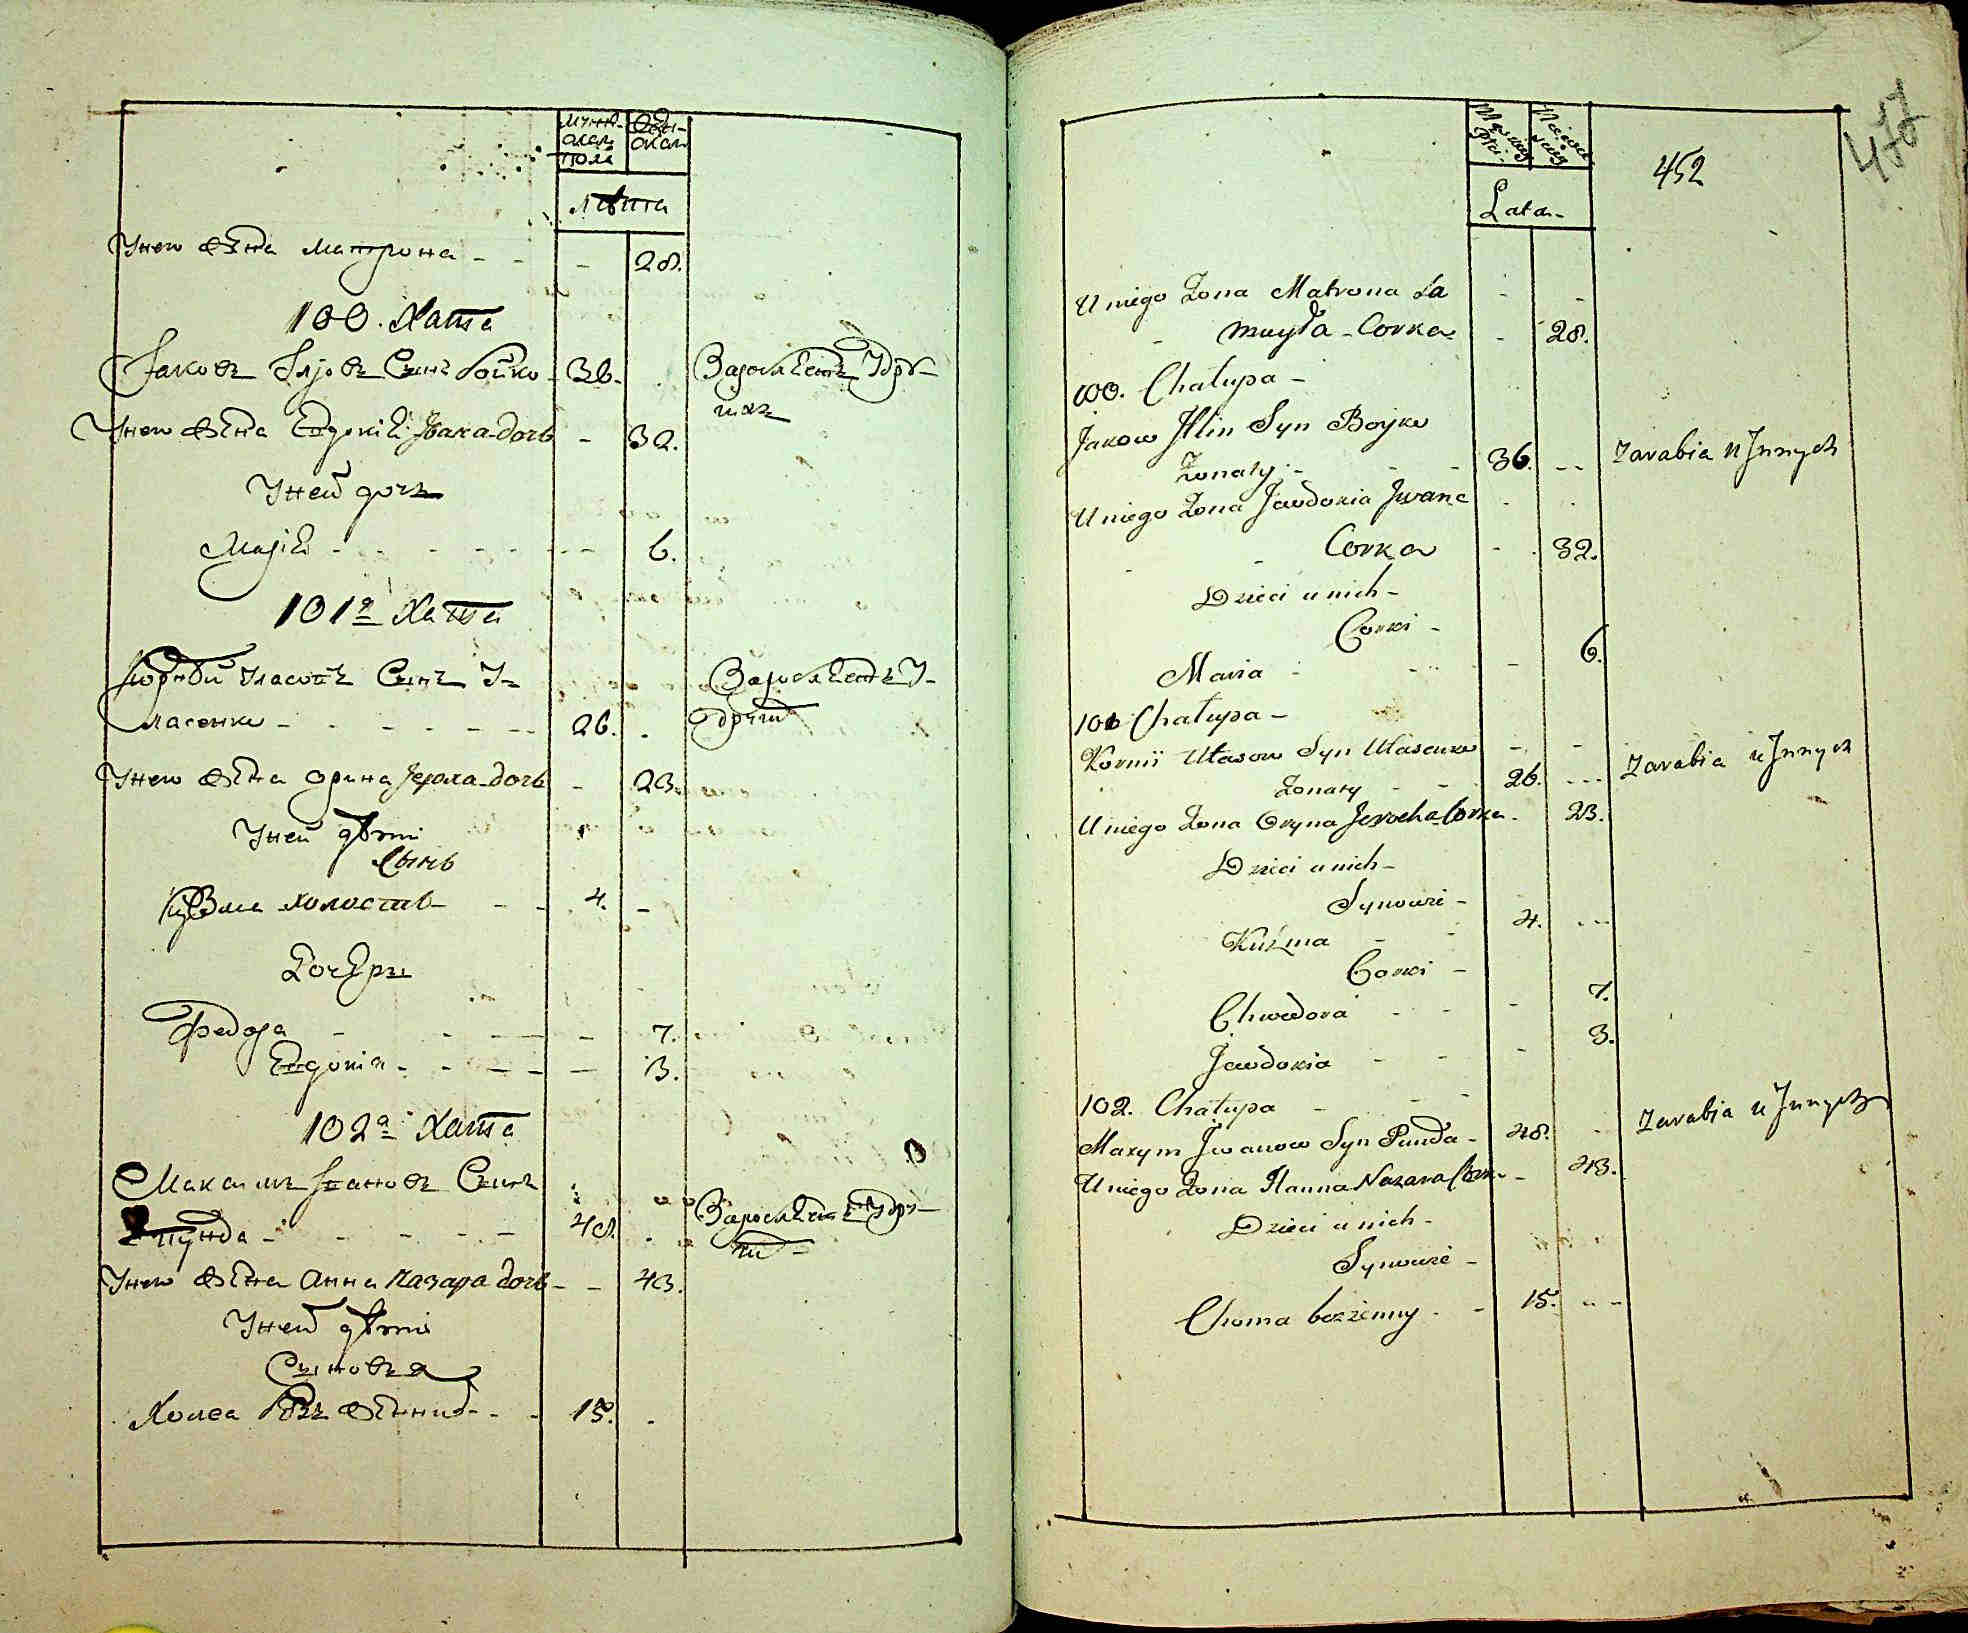 Мужескаго пола
Женскаго
Лѣта
У него жена Матрона - - - 28.
100. Хата
Яковъ Ілїовъ Сынъ Бойко - 36.
Заробляетъ У други
ихъ
У него жена Евдокія Ивана дочь - 32.
У ней дочъ
Марія - - - - - 6.
101а Хата
Корній Уласовъ Сынъ У-
Заробляетъ У-
ласенко - - - - - 26.
другии
У него жена Орина Яроха дочь - 23.
У ней дѣти
Сынъ
Кузма холостъ - - 4. -
Дочери
Федора - - - - 7.
Евдокія - - - - 3.
102а Хата
Максимъ Ивановъ Сынъ
Пунда - - - - - 48.
Заробляетъ У дру-
ги -
У него жена Анна Назара дочь - - 43.
У ней дѣти
Сыновья
Хома - - - 15.
477
452
Lata -
U niego Zona Matrona Sa
muyła - Corka - 28.
100. Chałupa -
Jakow Illin Syn Boyko
Zonaty - - - 36. - - Zarabia u Jnnych
U niego Zona Jewdokia Jwana
Corka - - 32.
Dzieci u nich -
Corki -
Maria - - - 6.
101 Chałupa -
Kornii Ułasow Syn Ułasenko - -
Zonaty - - 26. - - - Zarabia u Jnnych
U niego Zona Oryna Jerocha Corka - 23.
Dzieci u nich -
Synowie -
Kuźma - - 4. - - -
Corki -
Chwedora - - - 7.
Jewdokia - - - 3.
102. Chałupa - - -
Maxym Jwanow Syn Punda - 48. - Zarabia u Jnnych
U niego Zona Hanna Nazara Corka - 43.
Dzieci u nich -
Synowie -
Choma bezżenny - - 15. - -